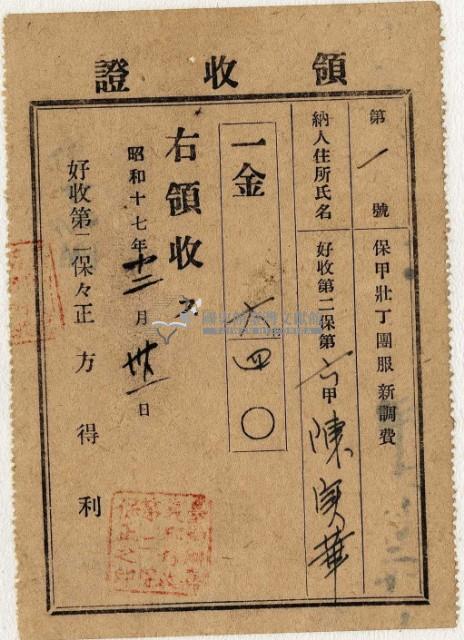 領收證
第一號　保甲壯丁團服新調費
納入住所氏名　好收第二保第六甲 陳寅華
一金　七四〇
右領收ス
昭和十七年十二月卅一日
好收第二保々正　方得利
保正之印